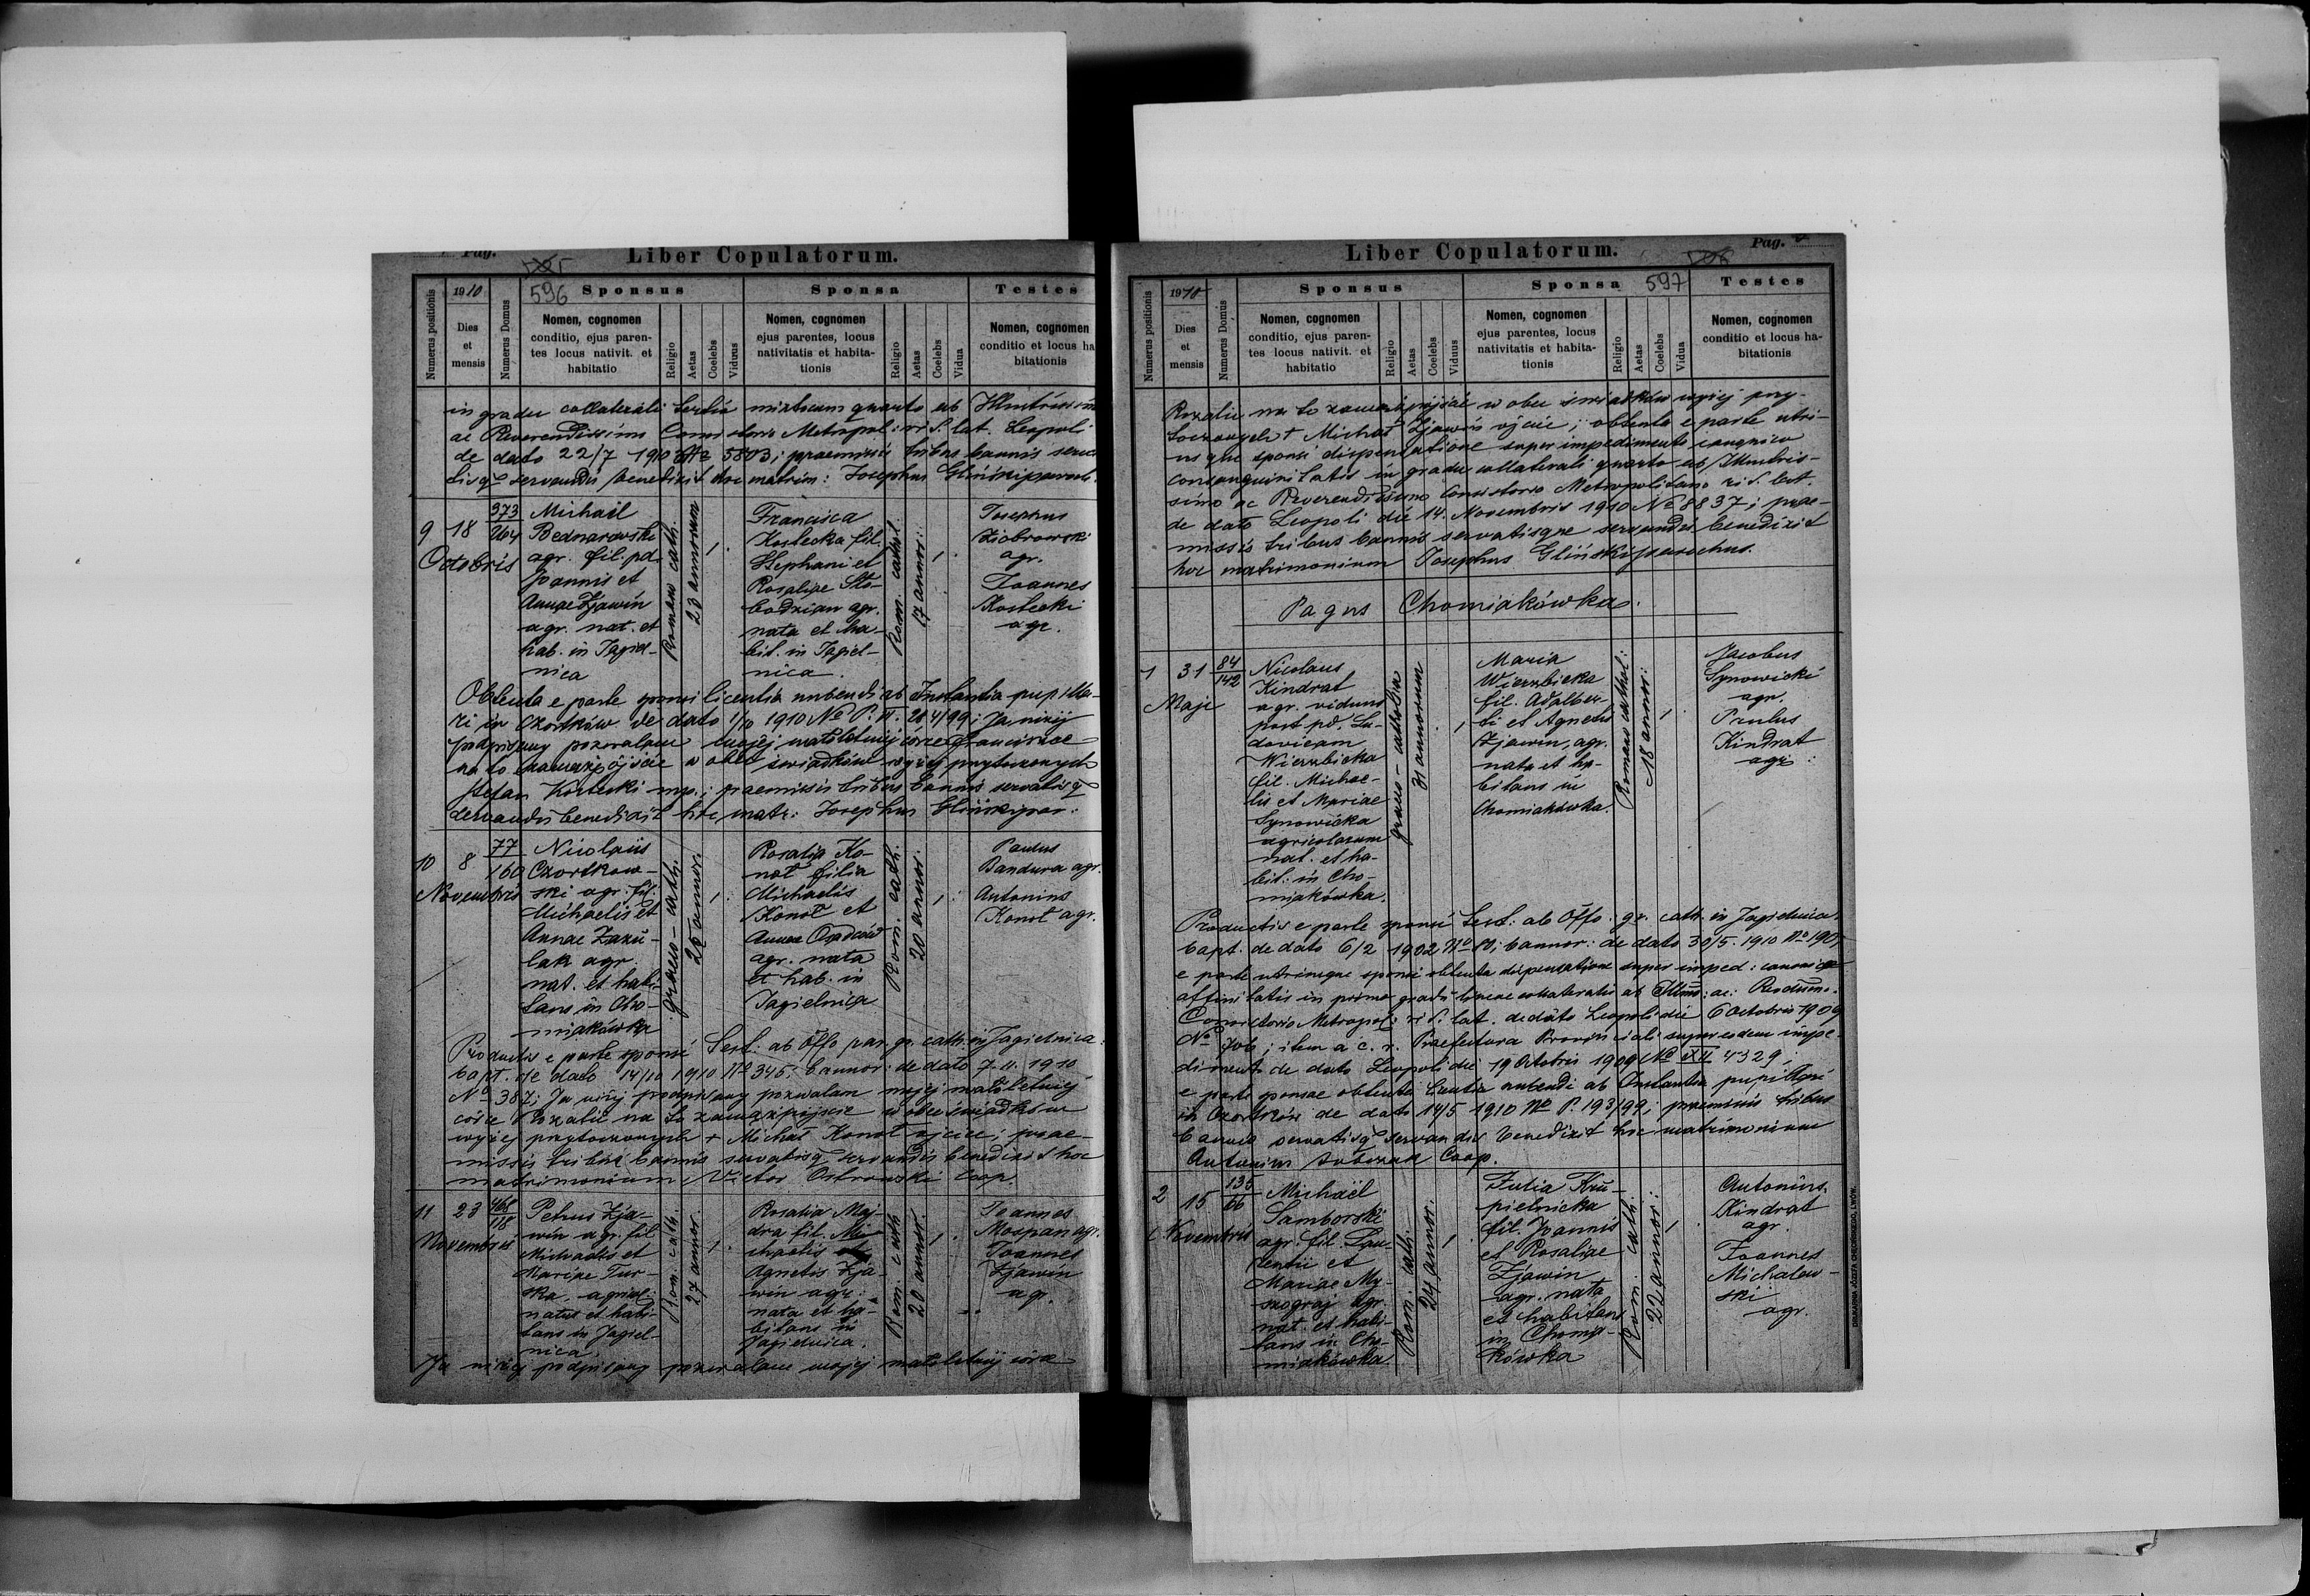 Pag.
Liber Copulatorum.
596
Numerus positionis
1910
Dies
et
mensis
Numerus Domus
Sponsus
Nomen, cognomen
conditio, ejus paren-
tes locus nativit. et
habitatio
Religio
Aetas
Coelebs
Viduus
Sponsa
Nomen, cognomen
ejus parentes, locus
nativitatis et habita-
tionis
Religio
Aetas
Coelebs
Vidua
Testes
Nomen, cognomen
conditio et locus ha
bitationis
in gradu collaterali tertio mixtum quarto ab
ac Reverendissimo Consistorio Metropol: rit. lat. Leopoli
de dato 22/7 1910 5803; praemissis tribus bannis serva
tisq servandis benedixit hoc matrim: Josephus Gliński paroch.
9
18
Octobris
373
264
Michaël
Bednarowski
agr. fil. pd.
Joannis et
Annae Zjawin
agr. nat. et
hab. in Jagiel-
nica
Romano cath.
23 annorum
1.
Francisca
Kostecka fil.
Stephani et
Rosaliae Sło-
bodzian agr.
nata et ha-
bit. in Jagiel-
nica.
Rom. cathol.
17 annor:
1.
Josephus
Ziobrowski
agr.
Joannes
Kostecki
agr.
Obtenta e parte sponsi licentia nubendi ab Instantia pupilla-
ri in Czortków de dato 1/10 1910 No P. VI. 204/99; Ja niżej
podpisany pozwalam mojej małoletniej córce Francisce
na to zamążpójście w obec świadków wyżej przytoczonych
Stefan Kostecki mp.; praemissis tribus bannis servatisq
servandis benedixit hoc matr: Josephus Gliński par:
10
8
Novembris
77
160
Nicolaus
Czortkow-
ski agr: fil:
Michaelis et
Annae Zaku-
lak agr.
nat. et habi-
tans in Cho-
miakówka
graeco-cath.
annor.
1.
Rosalia Ko-
not filia
Michaelis
Konot et
Annae Osadców
agr. nata
et hab. in
Jagielnica
Rom. cath.
20 annor.
1.
Paulus
Bandura agr.
Antonius
Konot agr.
Productis e parte sponsi Test: ab Offo par. gr. cath. in Jagielnica:
bapt. de dato 14/10 1910 No 345; bannor: de dato 7. 11. 1910
No 387; Ja niżej podpisany pozwalam mojej małoletniej
córce Rozalii na to zamążpójście w obec świadków
wyżej przytoczonych + Michał Konot ojciec; prae-
missis tribus bannis servatisq servandis benedixit hoc
matrimonium Victor Ostrowski Coop.
11
23
Novembris
468
118
Petrus Zja-
win agr. fil
Michaelis et
Mariae Tur-
ska, agricol:
natus et habi-
tans in Jagiel-
nica
Rom. cath:
27 annor:
1.
Rosalia Maj-
dra fil. Mi-
chaelis et
Agnetis Zja-
win agr:
nata et ha-
bitans in
Jagielnica.
Rom. cath
20 annor:
1.
Joannes
Mospan agr.
Joannes
Zjawin
agr.
Ja niżej podpisany pozwalam mojej małoletniej córce
Pag.
Liber Copulatorum.
597
Numerus positionis
1910
Dies
et
mensis
Numerus Domus
Sponsus
Nomen, cognomen
conditio, ejus paren-
tes locus nativit. et
habitatio
Religio
Aetas
Coelebs
Viduus
Sponsa
Nomen, cognomen
ejus parentes, locus
nativitatis et habita-
tionis
Religio
Aetas
Coelebs
Vidua
Testes
Nomen, cognomen
conditio et locus ha-
bitationis
Rozalii na to zamążpójście w obec świadków wyżej przy-
toczonych + Michał Zjawin ojciec; obtenta e parte utri-
usque sponsi dispensatione super impedimento canonico
consanguinitatis in gradu collaterali quarto ab Illustris-
simo ac Reverendissimo Consistorio Metropolitano rit. lat.
de dato Leopoli die 14. Novembris 1910 No 8837; prae-
missis tribus bannis servatisque servandis benedixit
hoc matrimonium Josephus Gliński parochus.
Pagus Chomiakówka.
1
31
Maji
84
142
Nicolaus
Kindrat
agr. viduus
post pd. Lu-
dovicam
Wierzbicka
fil. Michae-
lis et Mariae
Synowicka
agricolarum
nat. et ha-
bit: in Cho-
miakówka.
graeco-catholica
31 annorum
1
Maria
Wierzbicka
fil. Adalber-
ti et Agnetis
Zjawin, agr.
nata et ha-
bitans in
Chomiakówka.
Romano cathol:
18 annor:
1.
Jacobus
Synowicki
agr.
Paulus
Kindrat
agr:
Productis e parte sponsi Test: ab Offo gr. cath. in Jagielnica:
bapt. de dato 6/2 1902 No 10; bannor: de dato 30/5. 1910 No 190;
e parte utriusque sponsi obtenta dispensatione super imped: canonico
affinitatis in primo gradu lineae collateralis ab Illmo: ac: Revdissmo.
Consistorio Metropol: rit. lat. de dato Leopoli die 6 Octobris 1909
No 706; item a c. r. Praefectura Provinciali super eodem impe-
dimento de dato Leopoli die 19 Octobris 1909 No XII 4329;
e parte sponsae obtenta licentia nubendi ab Instantia pupillari
in Czortków de dato 14/5 1910 No P. 193/99; praemissis tribus
bannis servatisq servandis benedixit hoc matrimonium
Antonius Coop.
2
15
Novembris
135
66
Michaël
Samborski
agr. fil. Lau-
rentii et
Mariae My-
szograj agr.
nat. et habi-
tans in Cho-
miakówka
Rom. cath.
24 annor.
1
Julia Kru-
pielnicka
fil. Joannis
et Rosaliae
Zjawin
agr. nata
et habitans
in Chomia-
kówka
Rom. cath.
22 annor:
1.
Antonius
Kindrat
agr.
Joannes
Michalew-
ski
agr.
DRUKARNIA JÓZEFA CHĘCIŃSKIEGO, LWÓW.